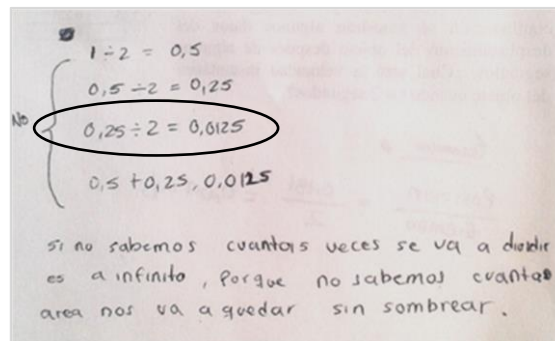 1 ÷ 2 = 0,5
0,5 ÷ 2 = 0,25
No
0,25 ÷ 2 = 0,0125
0,5 + 0,25, 0,0125
si no sabemos cuantas veces se va a dividir
es a infinito, Porque no sabemos cuanta
area nos va a quedar sin sombrear.